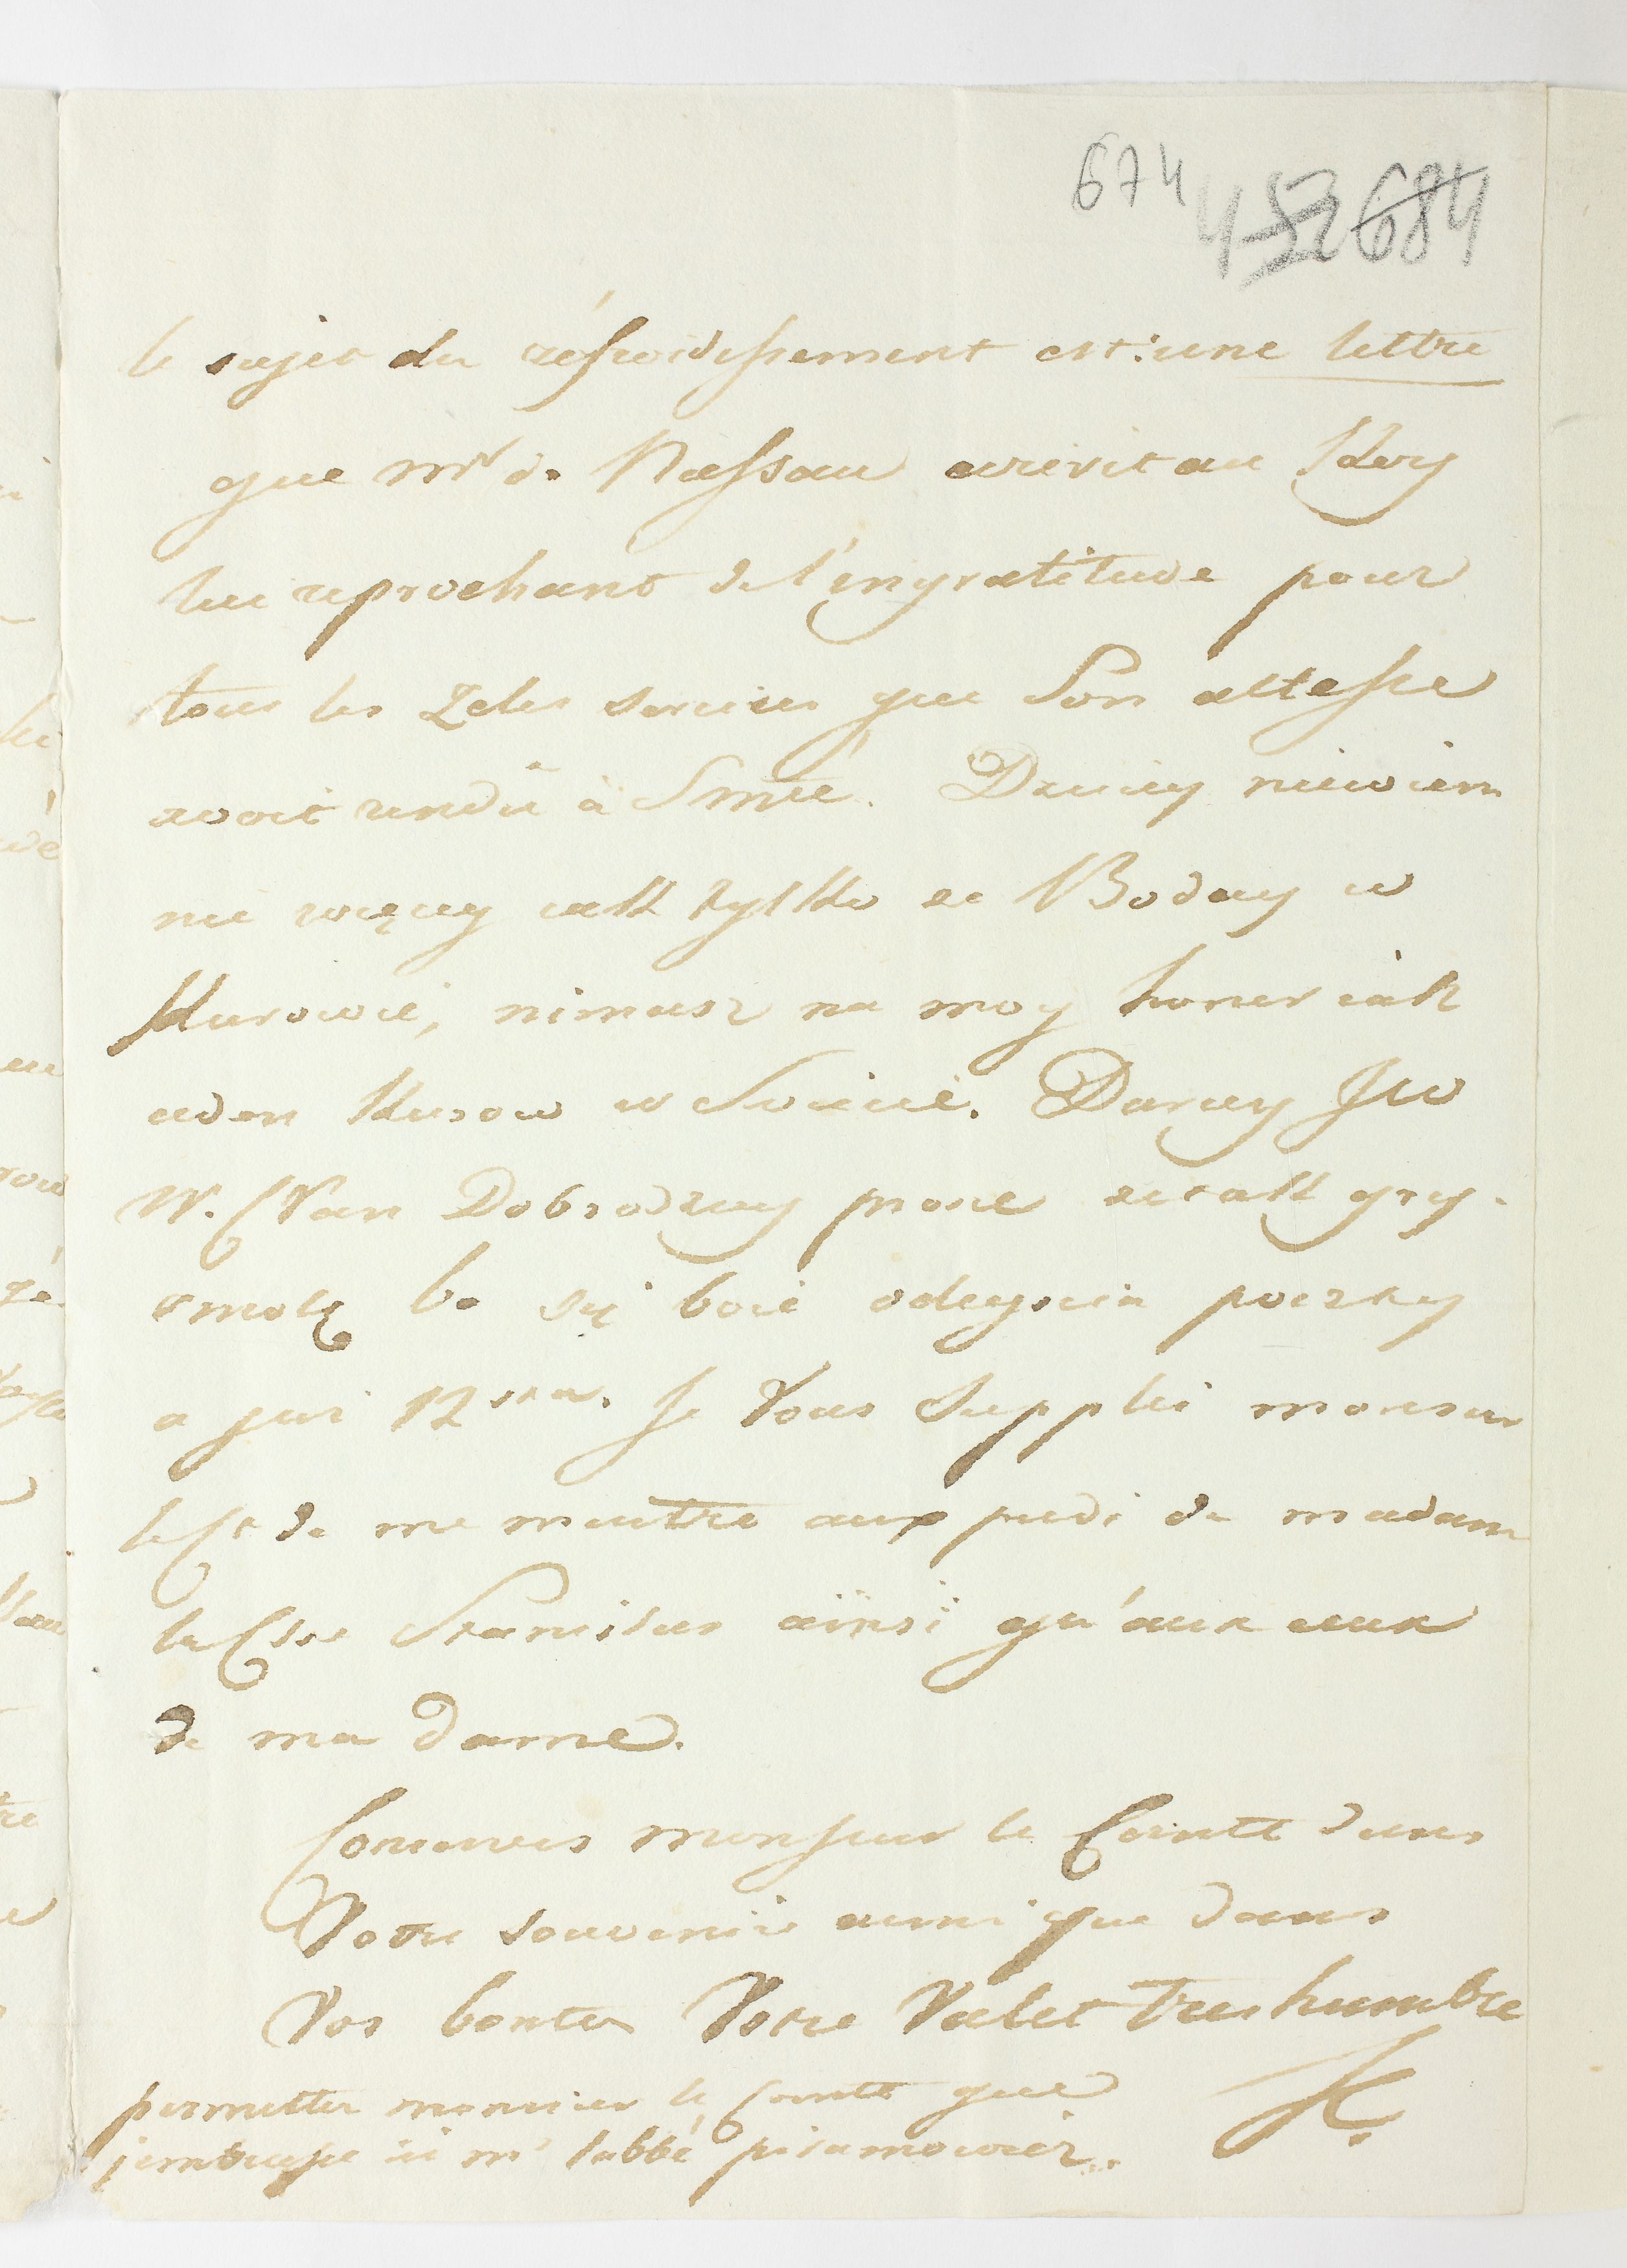 674 452 684
le sujet du réfroidissement est: une lettre
que mr de Nassau ecrivit au Roy
lui reprochant de l'ingratitude pour
tous les zeles services que Son altesse
avoit rendû à Smté. Draiey niewiem
nic więcy iak tylko ze Boday w
Kurowie, nimasz na moy honor iak
ieden Kurow w Swiecie. Daruy JW
W. Pan Dobrodziey prosze ze tak gry-
smolę bo się boie odeyscia poczty
a juz 12sta. Je Vous Supplei monsieur
le Ct de me mettre aux pieds de madame
la Ctsse Stanislas aïnsi qu'aux ceux
de ma dame.
Conservés monsieur le Comte dans
Votre souvenir aussi que dans
Vos bontes Votre Valet tres humble
permettes monsieur le Comte que
j'embrasse ici mr l'abbé piramowicz..